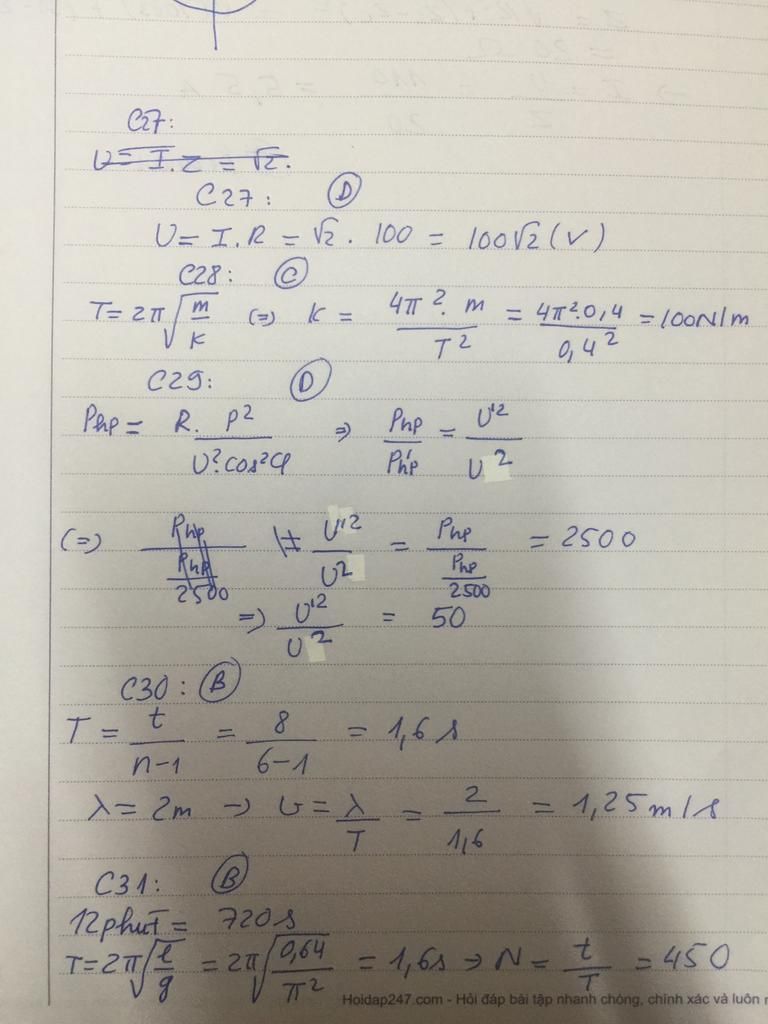 C27:
U = I.Z = √2.
C27: D
U = I.R = √2 . 100 = 100√2 (V)
C28: C
T = 2π√(m/K) (=) K = 4π². m / T² = 4π².0,4 / 0,4² = 100N/m
C29: D
Php = R. P² / U².cos²φ => Php/Php' = U'²/U²
(=) Php / (Php/2500) U'²/U² = Php / (Php/2500) = 2500
=) U'²/U² = 50
C30: B
T = t/(n-1) = 8/(6-1) = 1,6 s
λ = 2m → v = λ/T = 2/1,6 = 1,25 m/s
C31: B
12 phút = 720s
T = 2π√(l/g) = 2π√(0,64/π²) = 1,6s => N = t/T = 450
Hoidap247.com - Hỏi đáp bài tập nhanh chóng, chính xác và luôn